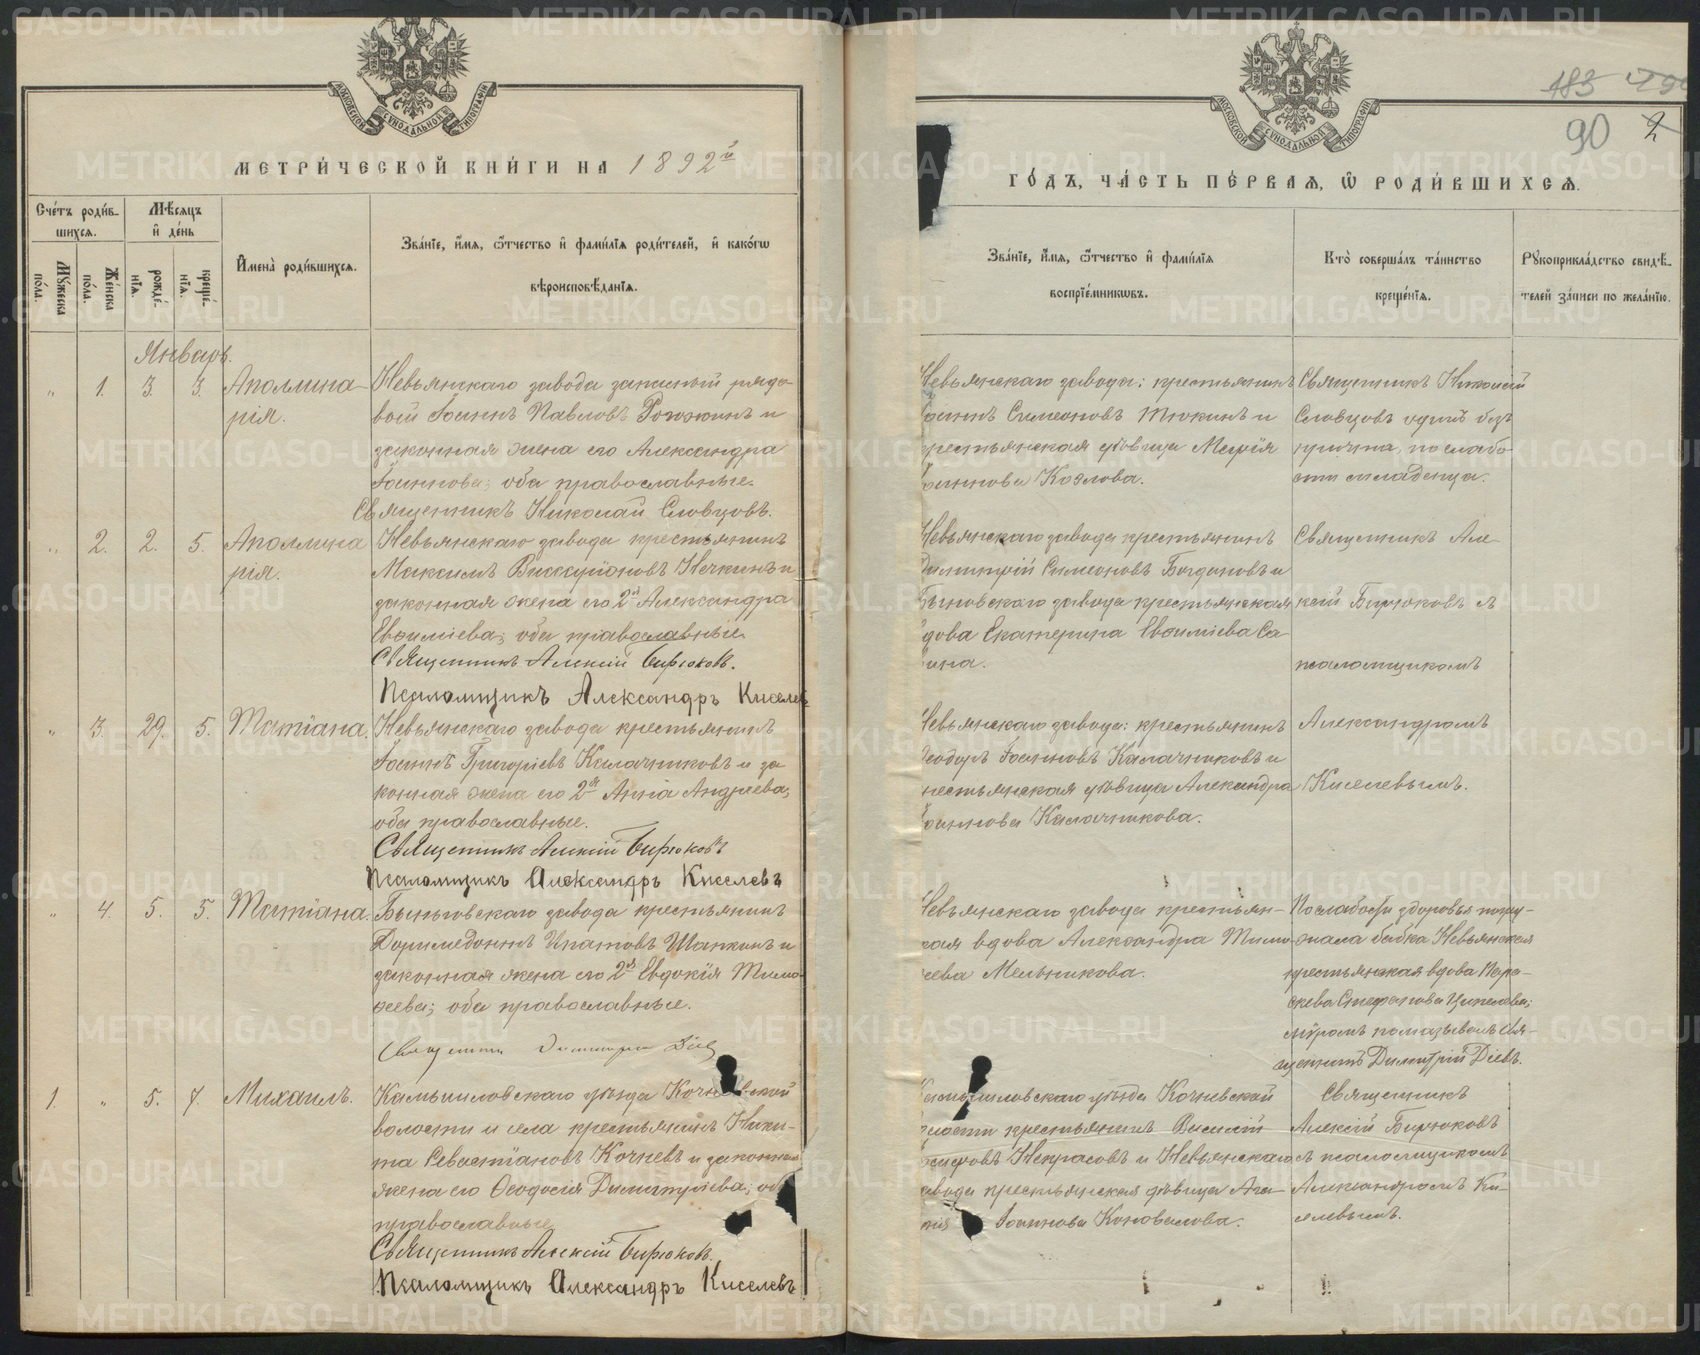 МОСКОВСКОЙ СѴНОДАЛЬНОЙ ТИПОГРАФІИ
МЕТРИ́ЧЕСКОЙ КНИ́ГИ НА 1892й
Сче́тъ роди́в-
шихсѧ.
Мѣ́сѧцъ
и҆ де́нь
Мꙋ́жеска по́ла.
Же́нска по́ла.
рожде́-
нїѧ.
креще́-
нїѧ.
И҆мена̀ роди́вшихсѧ.
Зва́нїе, и҆́мѧ, ѻ҆́тчество и҆ фами́лїѧ роди́телей, и҆ како́гѡ
вѣроисповѣ́данїѧ.
Январь.
„ 1. 3. 3. Аполлина-
рія.
Невьянскаго завода запасный рядо-
вой Іоаннъ Павловъ Рогожинъ и
законная жена его Александра
Іоаннова; оба православные.
Священникъ Николай Словцовъ.
„ 2. 2. 5. Аполлина
рія.
Невьянскаго завода крестьянинъ
Максимъ Виссаріоновъ Нечкинъ и
законная жена его 2я Александра
Евѳиміева; оба православные.
Священникъ Алексій Бирюковъ.
Псаломщикъ Александръ Киселев
„ 3. 29. 5. Татіана.
Невьянскаго завода крестьянинъ
Іоаннъ Григоріевъ Калачниковъ и за
конная жена его 2я Анна Андреева;
оба православные.
Священникъ Алексій Бирюковъ
Псаломщикъ Александръ Киселевъ
„ 4. 5. 5. Татіана.
Быньговскаго завода крестьянинъ
Доримедонтъ Ипатовъ Шапкинъ и
законная жена его 2я Евдокія Тимо-
ѳеева; оба православные.
Священникъ Димитрій Діев
1. „ 5. 7. Михаилъ.
Камышловскаго уѣзда Кочневской
волости и села крестьянинъ Ники-
та Севастіановъ Кочневъ и законная
жена его Ѳеодосія Димитріева; об
православные
Священникъ Алексій Бирюковъ.
Псаломщикъ Александръ Киселевъ
183
90 2
МОСКОВСКОЙ СѴНОДАЛЬНОЙ ТИПОГРАФІИ
ГО́ДЪ, ЧА́СТЬ ПЕ́РВАѦ, Ѽ РОДИ́ВШИХСѦ.
Зва́нїе, и҆́мѧ, ѻ҆́тчество и҆ фами́лїѧ
воспрїе́мникѡвъ.
Кто̀ соверша́лъ та́инство
креще́нїѧ.
Рꙋкоприкла́дство свидѣ́-
телей за́писи по жела́нїю.
Невьянскаго завода: крестьянинъ
оаннъ Симеоновъ Тюкинъ и
рестьянская дѣвица Марія
оаннова Козлова.
Священникъ Николай
Словцовъ одинъ безъ
причта, по слабо-
сти младенца.
Невьянскаго завода крестьянинъ
Димитрій Симеоновъ Богдановъ и
Быновскаго завода крестьянская
дова Екатерина Евѳиміева Са-
ина.
Священникъ Але-
ксій Бирюковъ съ
псаломщикомъ
Невьянскаго завода: крестьянинъ
еодоръ Іоанновъ Калачниковъ и
рестьянская дѣвица Александра
оаннова Калачникова.
Александромъ
Киселевымъ.
Невьянскаго завода крестьян-
кая вдова Александра Тимо-
ѳеева Мельникова.
По слабости здоровья погру-
жала бабка Невьянская
крестьянская вдова Пара-
скева Стефанова
мѵромъ помазывалъ Свя-
щенникъ Димитрій Діевъ.
Камышловскаго уѣзда Кочневской
олости крестьянинъ Василій
сифовъ Некрасовъ и Невьянскаго
авода крестьянская дѣвица Ага-
Іоаннова Коновалова.
Священникъ
Алексій Бирюковъ
съ псаломщикомъ
Александромъ Ки-
селевымъ.
METRIKI.GASO-URAL.RU